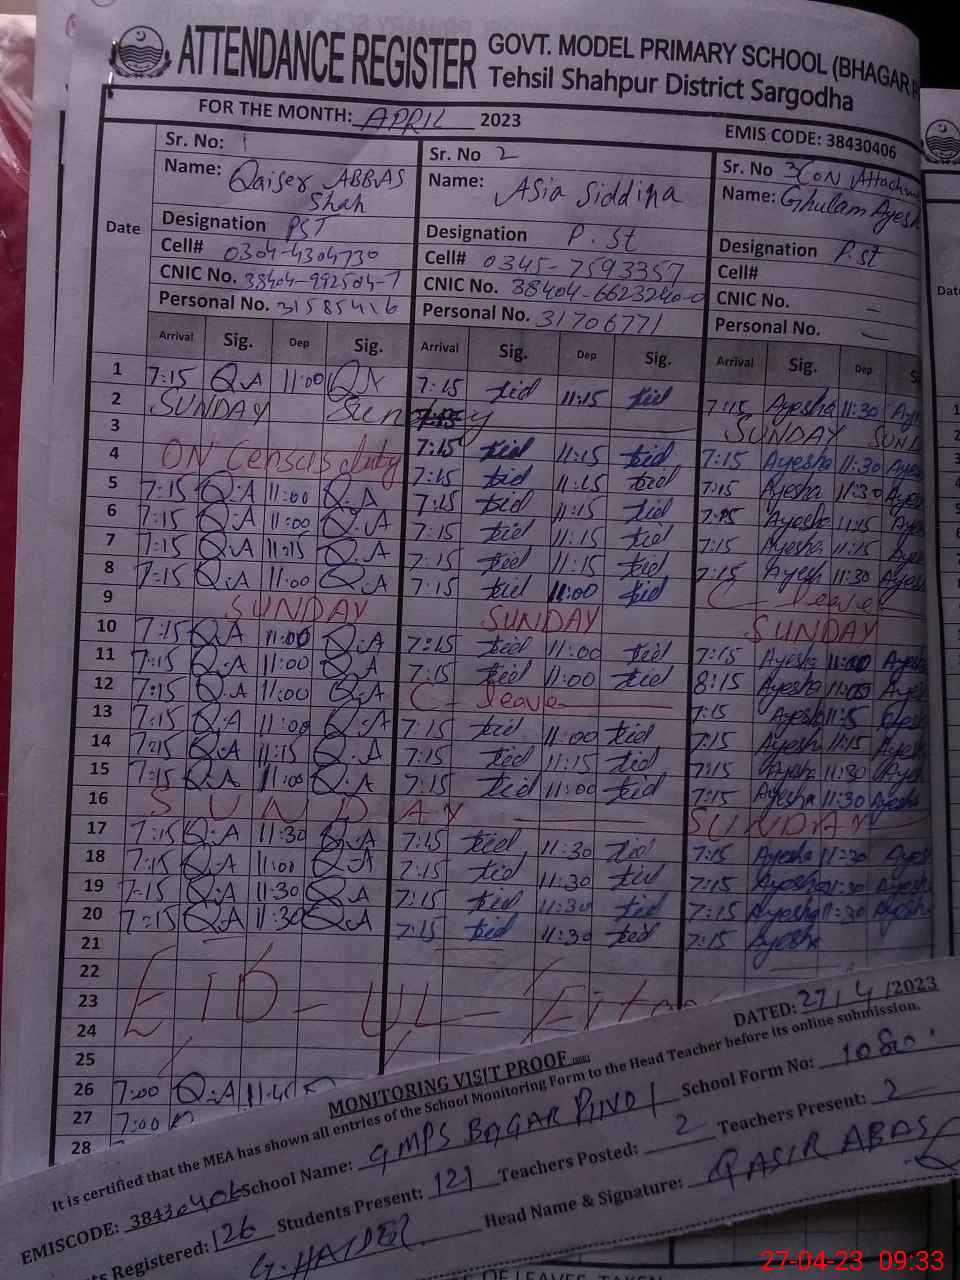 ATTENDANCE REGISTER GOVT. MODEL PRIMARY SCHOOL (BHAGAR
Tehsil Shahpur District Sargodha
FOR THE MONTH: APRIL 2023 EMIS CODE: 38430406
Date
Sr. No: 1
Name: Qaiser ABBAS Shah
Designation PST
Cell# 0304-4304730
CNIC No. 38404-992504-7
Personal No. 31585416
Sr. No 2
Name: Asia Siddiqa
Designation P.st
Cell# 0345-7593357
CNIC No. 38404-6623240-0
Personal No. 31706771
Sr. No 3 (ON Attachm
Name: Ghulam Ayesh
Designation P.st
Cell#
CNIC No. –
Personal No. –
Arrival Sig. Dep Sig. Arrival Sig. Dep Sig. Arrival Sig. Dep S
1 7:15 Q.A 11:00 Q.A 7:15 sid 11:15 sid 7:15 Ayesha 11:30 Ay
2 SUNDAY Sunday SUNDAY SUND
3 7:15 sid 11:15 sid 7:15 Ayesha 11:30 Aye
4 ON Census duty 7:15 sid 11:15 sid 7:15 Ayesha 11:30 Aye
5 7:15 Q.A 11:00 Q.A 7:15 sid 11:15 sid 7:15 Ayesha 11:15 Aye
6 7:15 Q.A 11:00 Q.A 7:15 sid 11:15 sid 7:15 Ayesha 11:15 Aye
7 7:15 Q.A 11:15 Q.A 7:15 sid 11:15 sid 7:15 Ayesh 11:30 Aye
8 7:15 Q.A 11:00 Q.A 7:15 sid 11:00 sid C – leave
9 SUNDAY SUNDAY SUNDAY
10 7:15 Q.A 11:00 Q.A 7:15 sid 11:00 sid 7:15 Ayesha 11:00 Ayesh
11 7:15 Q.A 11:00 Q.A 7:15 sid 11:00 sid 8:15 Ayesha 11:00 Aye
12 7:15 Q.A 11:00 Q.A C – leave 7:15 Ayesha 11:15 Ayesh
13 7:15 Q.A 11:00 Q.A 7:15 sid 11:00 sid 7:15 Ayesh 11:15 Aye
14 7:15 Q.A 11:15 Q.A 7:15 sid 11:15 sid 7:15 Ayesha 11:30 Aye
15 7:15 Q.A 11:00 Q.A 7:15 sid 11:00 sid 7:15 Ayesha 11:30 Ayesh
16 SUNDAY SUNDAY
17 7:15 Q.A 11:30 Q.A 7:15 sid 11:30 sid 7:15 Ayesha 11:30 Ayesh
18 7:15 Q.A 11:00 Q.A 7:15 sid 11:30 sid 7:15 Ayesha 11:30 Aye
19 7:15 Q.A 11:30 Q.A 7:15 sid 11:30 sid 7:15 Ayesha 11:30 Ayesh
20 7:15 Q.A 11:30 Q.A 7:15 sid 11:30 sid 7:15 Ayesha
21
22
23 EID – UL – Fit
24
25
26 7:00 Q.A 11:4
27 7:00
28
MONITORING VISIT PROOF DATED: 27/4/2023
It is certified that the MEA has shown all entries of the School Monitoring Form to the Head Teacher before its online submission.
EMISCODE: 38430406 School Name: GMPS BAGAR School Form No: 1080
ts Registered: 126 Students Present: 121 Teachers Posted: 2 Teachers Present: 2
G. HAIDER Head Name & Signature: QASIR ABAS
27-04-23 09:33